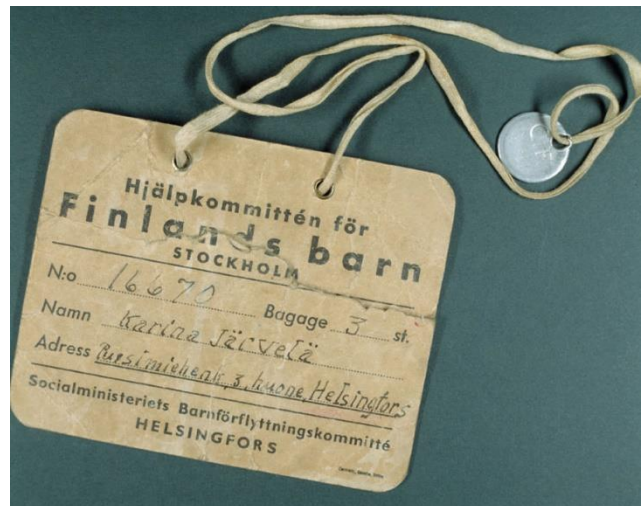 Hjälpkommittén för
Finlands barn
STOCKHOLM
N:o 16670 Bagage 3 st.
Namn Karina Järvelä
Adress 3, huone, Helsingfors
Socialministeriets Barnförflyttningskommitté
HELSINGFORS